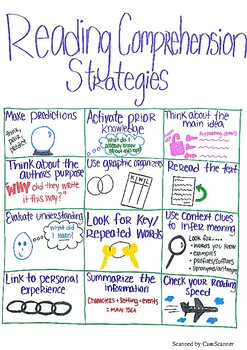 Reading Comprehension
Strategies
Make predictions
think,
pair,
predict
Activate prior
knowledge
what do I
already know
about
Think about the
main idea
supporting details
Think about the
author's purpose
"WHY did they write
it this way?"
Use graphic organizers
K W L
Reread the text
Evaluate understanding
what did
I learn?
Look for Key/
Repeated Words
Use Context Clues
to infer meaning
Look for....
• words you know
• examples
• prefixes/suffixes
• synonyms/antonyms
Link to personal
experience
Summarize the
information
Characters + setting + events
= MAIN IDEA
Check your
Reading
speed
Scanned by CamScanner